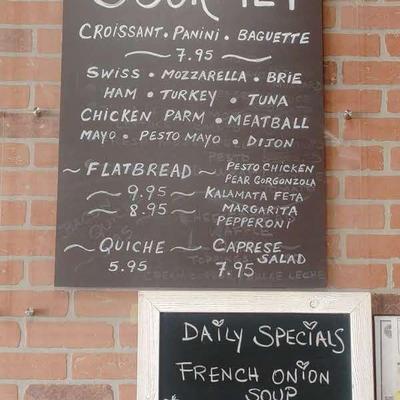 GOURMET
CROISSANT • PANINI • BAGUETTE
~ 7.95 ~
SWISS • MOZZARELLA • BRIE
HAM • TURKEY • TUNA
CHICKEN PARM • MEATBALL
MAYO • PESTO MAYO • DIJON
~ FLATBREAD ~ PESTO CHICKEN
PEAR GORGONZOLA
~ 9.95 ~ KALAMATA FETA
~ 8.95 ~ MARGARITA
PEPPERONI
~ QUICHE ~ CAPRESE
SALAD
5.95 7.95
DAILY SPECIALS
FRENCH ONION
SOUP